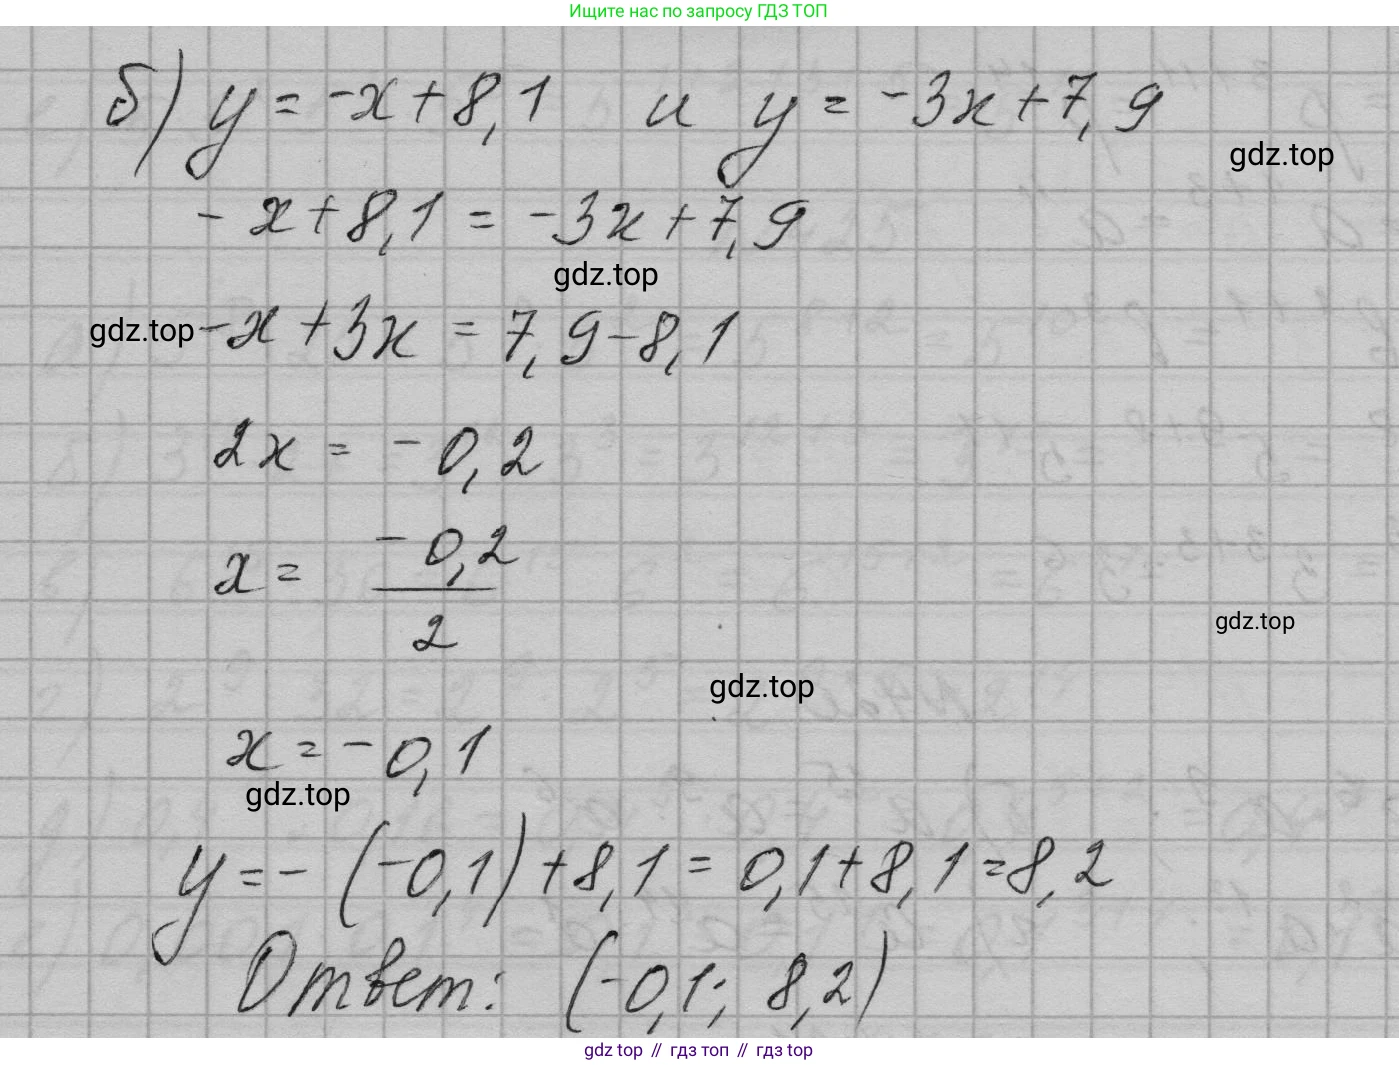 Ищите нас по запросу ГДЗ ТОП
б) y = -x + 8,1 и y = -3x + 7,9
gdz.top
-x + 8,1 = -3x + 7,9
gdz.top
gdz.top -x + 3x = 7,9 - 8,1
2x = -0,2
x = -0,2 / 2
gdz.top
gdz.top
x = -0,1
gdz.top
y = -(-0,1) + 8,1 = 0,1 + 8,1 = 8,2
Ответ: (-0,1; 8,2)
gdz top // гдз топ // гдз top